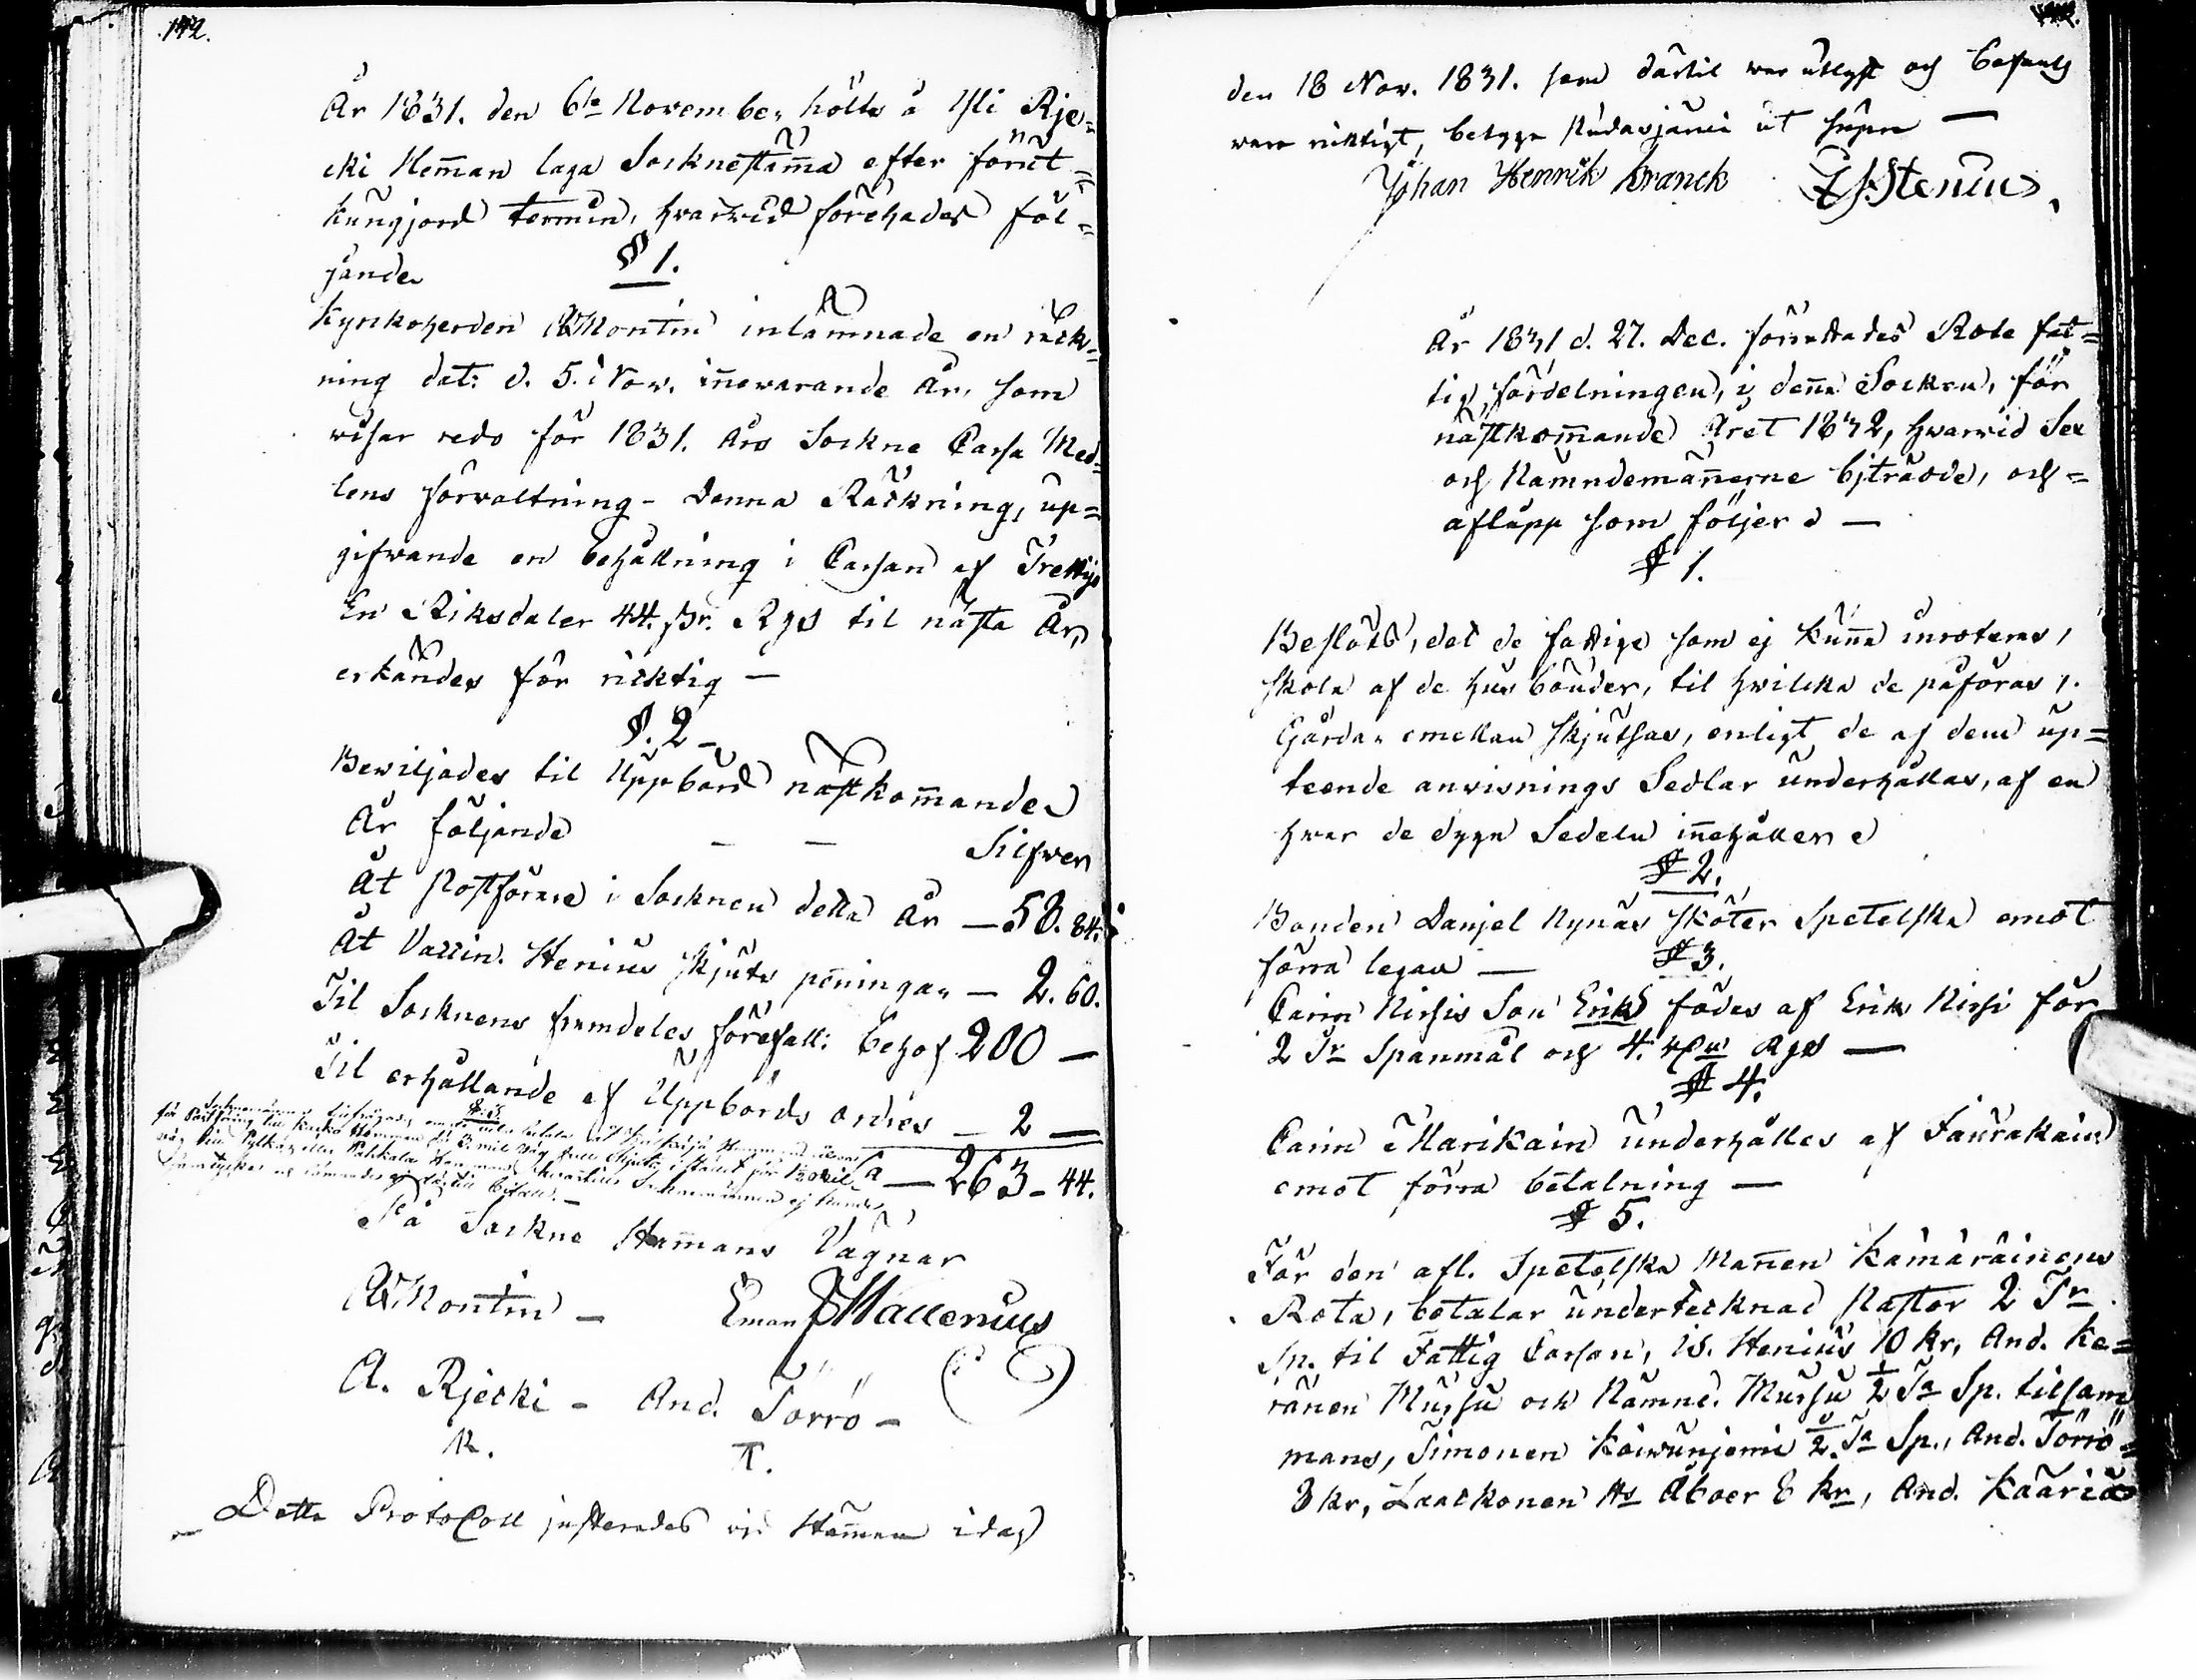 142.
År 1831. den 6te November hölts å Yli Rje=
cki Heman laga Sockne stämma efter förut
kungjord termin, hwarwid förehades föl=
jande
§ 1.
Kyrkoherden Montin inlämnade en räck=
ning dat: d. 5. Nov. inewarande År, som
wisar redo för 1831. Års Sockne Cassa Med=
lens förvaltning - Denna Räckning, up=
gifwande en behållning i Cassan af Trettijo
En Riksdaler 44. sk. Rgs til nästa År,
erkändes för ricktig —
§. 2 -
Bewiljades til Uppbörd nästkommande
År följande — — Silfwer
At Postförare i Socknen detta År — 58. 84.
At Vaccin. Stenius skjuts peningar — 2. 60.
Til Socknens fremdeles förefall: behof 200 —
Til erhållande af Uppbörds ordres — 2 —
§. 3.
Sa — 263 - 44.
På Sockne Stämmans Vägnar
Montin — Eman Wallenius
A. Rjecki - And. Törrö -
R. T.
Detta ProtoColl justerades vid Stämman idag
den 18 Nov. 1831. som därtil war utlyst och befants
vara ricktigt, betyga Pudasjärvi ut supra —
Johan Henrik Franck Is. Stenius
År 1831 d. 27. Dec. förrättades Rote fat=
tig fördelningen, i denna Socken, för
nästkommande Året 1832, hwarwid Sex
och Nämndemännerne bjträdde, och
aflupp som följer —
§ 1.
Beslöts, det de fattige som ej kunna inroteras,
skola af de hus bönder, til hwilcka de påföras,
Gårdar emellan skjutsas, enligt de af dem up=
teende anvisnings Sedlar underhållas, af en
hwar de dygn Sedeln innehåller
§ 2.
Bonden Danjel Nynäs sköter Spetelska emot
förra legan —
§ 3.
Carin Nissis Son Erik födes af Erik Nissi för
2 Tr Spanmål och 4. Rgs —
§ 4.
Carin Marikain underhålles af Taurakain
emot förra betalning —
§ 5.
För den afl. Spetelska Mannen Kämäräinens
Rota, betalar undertecknad Pastor 2 Tr
Sp. til Fattig Cassan, Is. Stenius 10 kr, And. Ke=
ränen Mursu och Nämnd. Mursu ½ Ta Sp. tilsam
mans, Timonen Koiwunjemi ½ Ta Sp., And. Törrö
8 kr, Laackonen Hs Åboer 8 kr, And. Kääriä